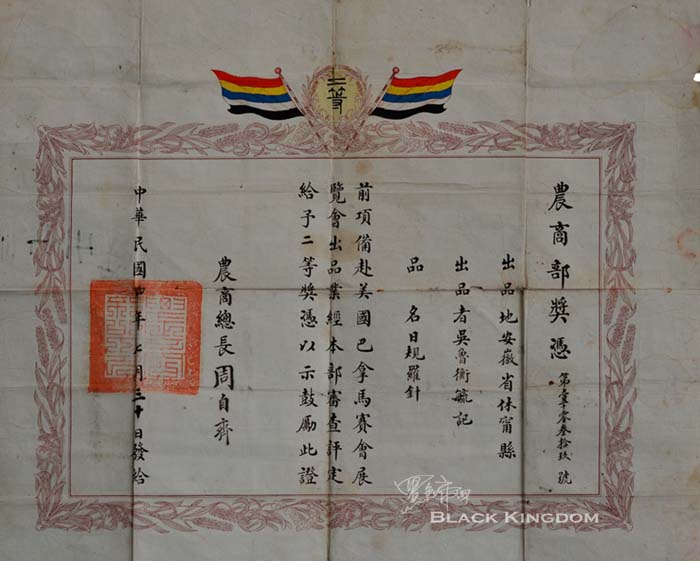 二等
農商部獎憑 第壹千零叁拾玖號
出品地安徽省休甯縣
出品者吳魯衡毓記
品名日規羅針
前項備赴美國巴拿馬賽會展
覽會出品業經本部審查評定
給予二等獎憑以示鼓勵此證
農商總長周自齊
中華民國四年七月三十日發給
BLACK KINGDOM